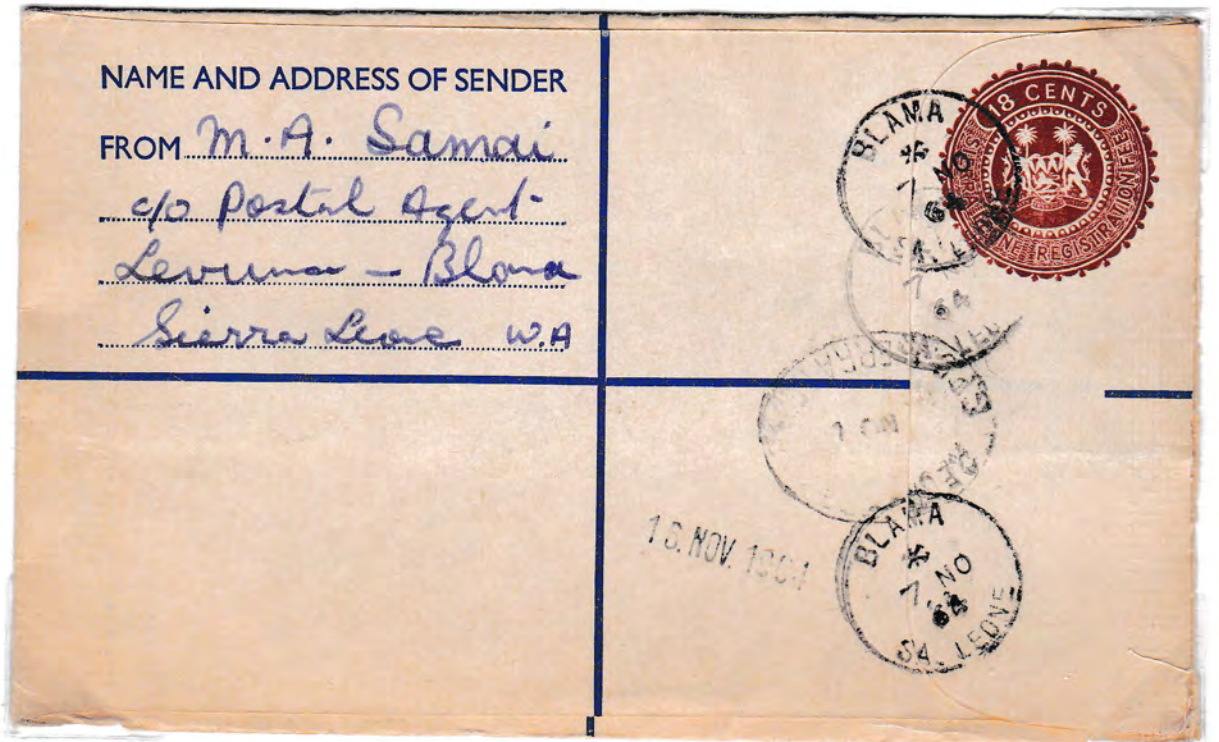 NAME AND ADDRESS OF SENDER
FROM M. A. Samai
c/o Postal Agent
Levuma – Blama
Sierra Leone W.A
18 CENTS
SIERRA LEONE REGISTRATION FEE
BLAMA
7 NO
64
SA. LEONE
7
64
7 NO
16. NOV. 1964
BLAMA
7 NO
64
SA. LEONE